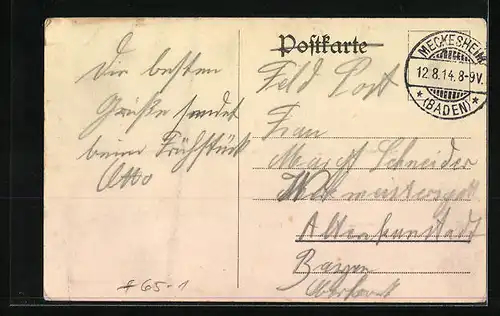 Postkarte
MECKESHEIM
12.8.14.8-9V.
* (BADEN) *
Die besten
Grüße sendet
beim Frühstück
Otto
Feld Post
Frau
Schneider
Altenkunstadt
Bayern
#65-1